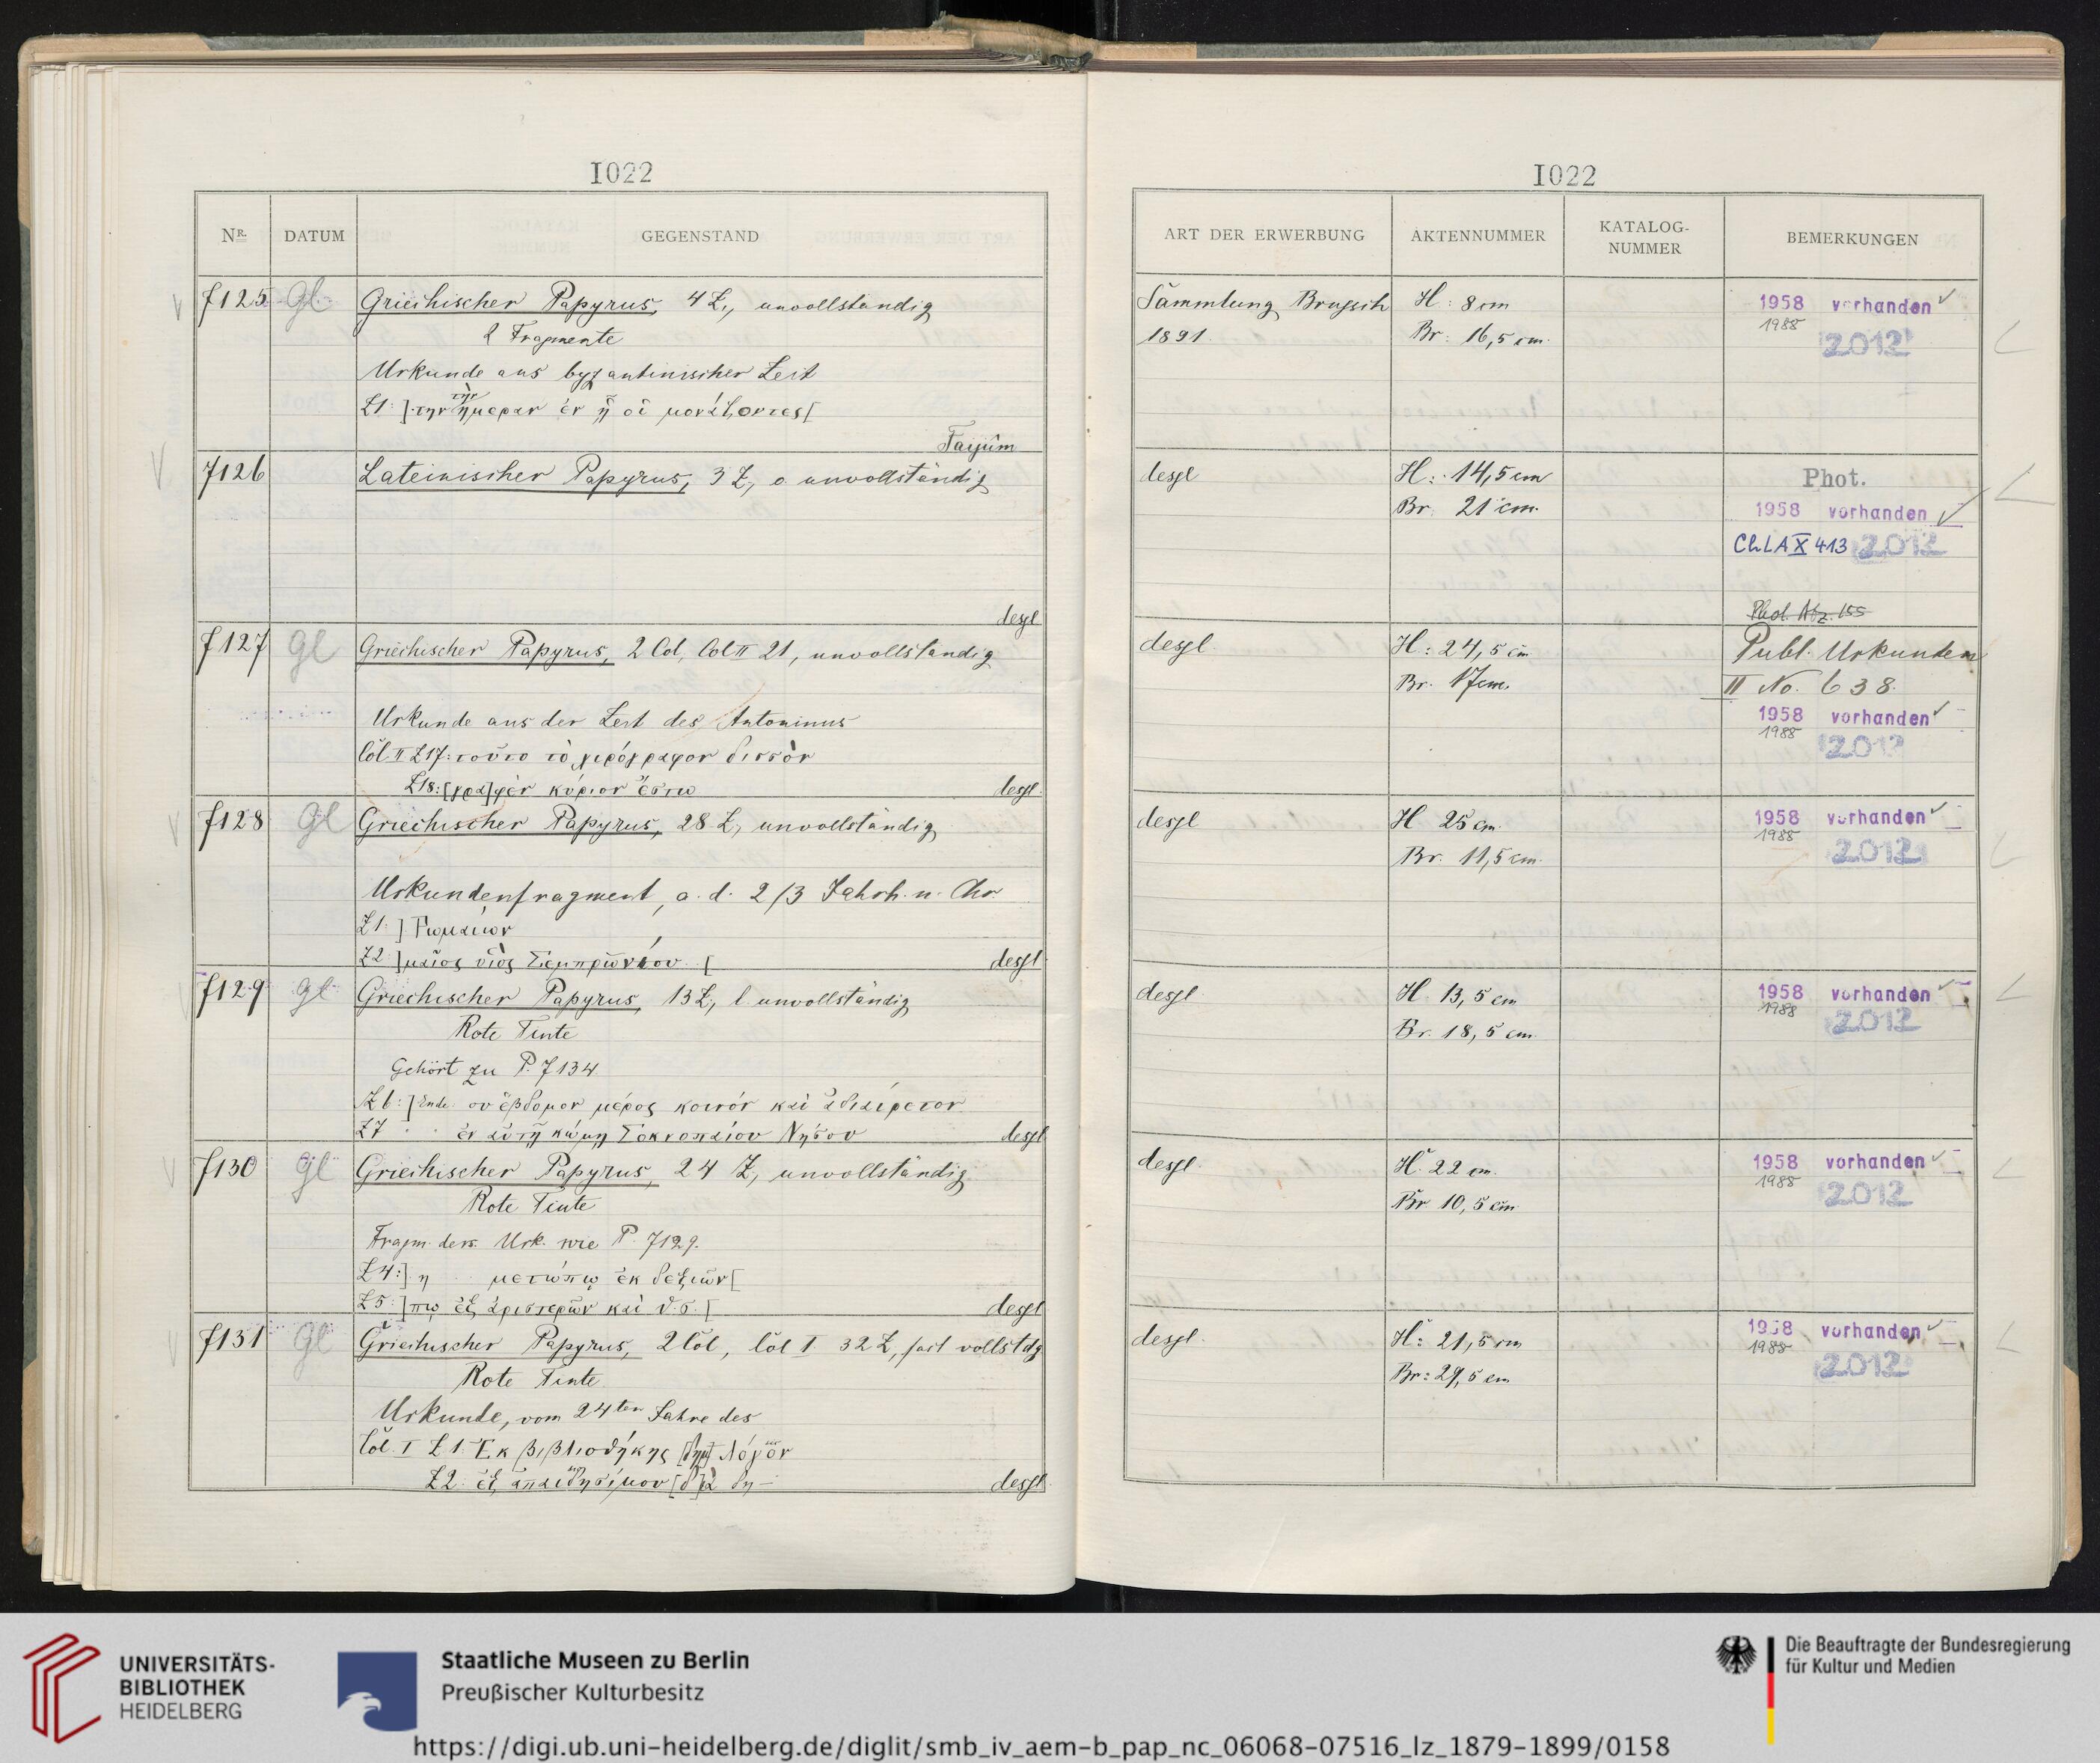 1022
Nr. DATUM GEGENSTAND
7125 Gl Griechischer Papyrus, 4 Z., unvollständig
2 Fragmente
Urkunde aus byzantinischer Zeit
Z1: ] την τὴν ἡμεραν ἐν ῇ οἱ μονάζοντες [
Faijûm
7126 Lateinischer Papyrus, 3 Z, o unvollständig
desgl
7127 Gl Griechischer Papyrus, 2 Col, Col II 21, unvollständig
Urkunde aus der Zeit des Antoninus
Col II Z17: τοῦτο τὸ χιρόγραφον δισσὸν
Z18: [γρα]φὲν κύριον ἔστω desgl.
7128 Gl Griechischer Papyrus, 28 Z, unvollständig
Urkundenfragment, a. d. 2/3 Jahrh. n. Chr
Z1: ] Ῥωμαίων
Z2 ]μαῖος υἱὸς Σεμπρωνίου [ desgl
7129 Gl Griechischer Papyrus, 13 Z, l. unvollständig
Rote Tinte
Gehört zu P. 7134
Z6: ] Ende ον ἕβδομον μέρος κοινόν καὶ ἀδιαίρετον
Z7 ἐν αὐτῇ κώμῃ Σοκνοπαίου Νήσου desgl
7130 Gl Griechischer Papyrus, 24 Z, unvollständig
Rote Tinte
Fragm. ders. Urk. wie P. 7129.
Z4: ] η μετώπῳ ἐκ δεξιῶν [
Z5: ] πῳ ἐξ ἀριστερῶν καὶ [ desgl
7131 Gl Griechischer Papyrus, 2 Col, Col I 32 Z, fast vollstdg
Rote Tinte
Urkunde, vom 24ten Jahre des
Col. I Z1: Ἐκ βιβλιοθήκης λόγον
Z2: ἐξ desgl
1022
ART DER ERWERBUNG AKTENNUMMER KATALOG-NUMMER BEMERKUNGEN
Sammlung Brugsch H: 8 cm 1958 vorhanden
1891. Br: 16,5 cm. 1988 2012
desgl H: 14,5 cm Phot.
Br. 21 cm. 1958 vorhanden
ChLA X 413 2012
Phot. Abz. 155
desgl. H: 24,5 cm Publ. Urkunden
Br. 17 cm. II No. 638.
1958 vorhanden
1988 2012
desgl H 25 cm. 1958 vorhanden
Br. 11,5 cm. 1988 2012
desgl H 13,5 cm 1958 vorhanden
Br. 18,5 cm 1988 2012
desgl. H. 22 cm. 1958 vorhanden
Br 10,5 cm 1988 2012
desgl. H: 21,5 cm 1958 vorhanden
Br: 29,5 cm 1988 2012
UNIVERSITÄTS-
BIBLIOTHEK
HEIDELBERG
Staatliche Museen zu Berlin
Preußischer Kulturbesitz
Die Beauftragte der Bundesregierung
für Kultur und Medien
https://digi.ub.uni-heidelberg.de/diglit/smb_iv_aem-b_pap_nc_06068-07516_lz_1879-1899/0158